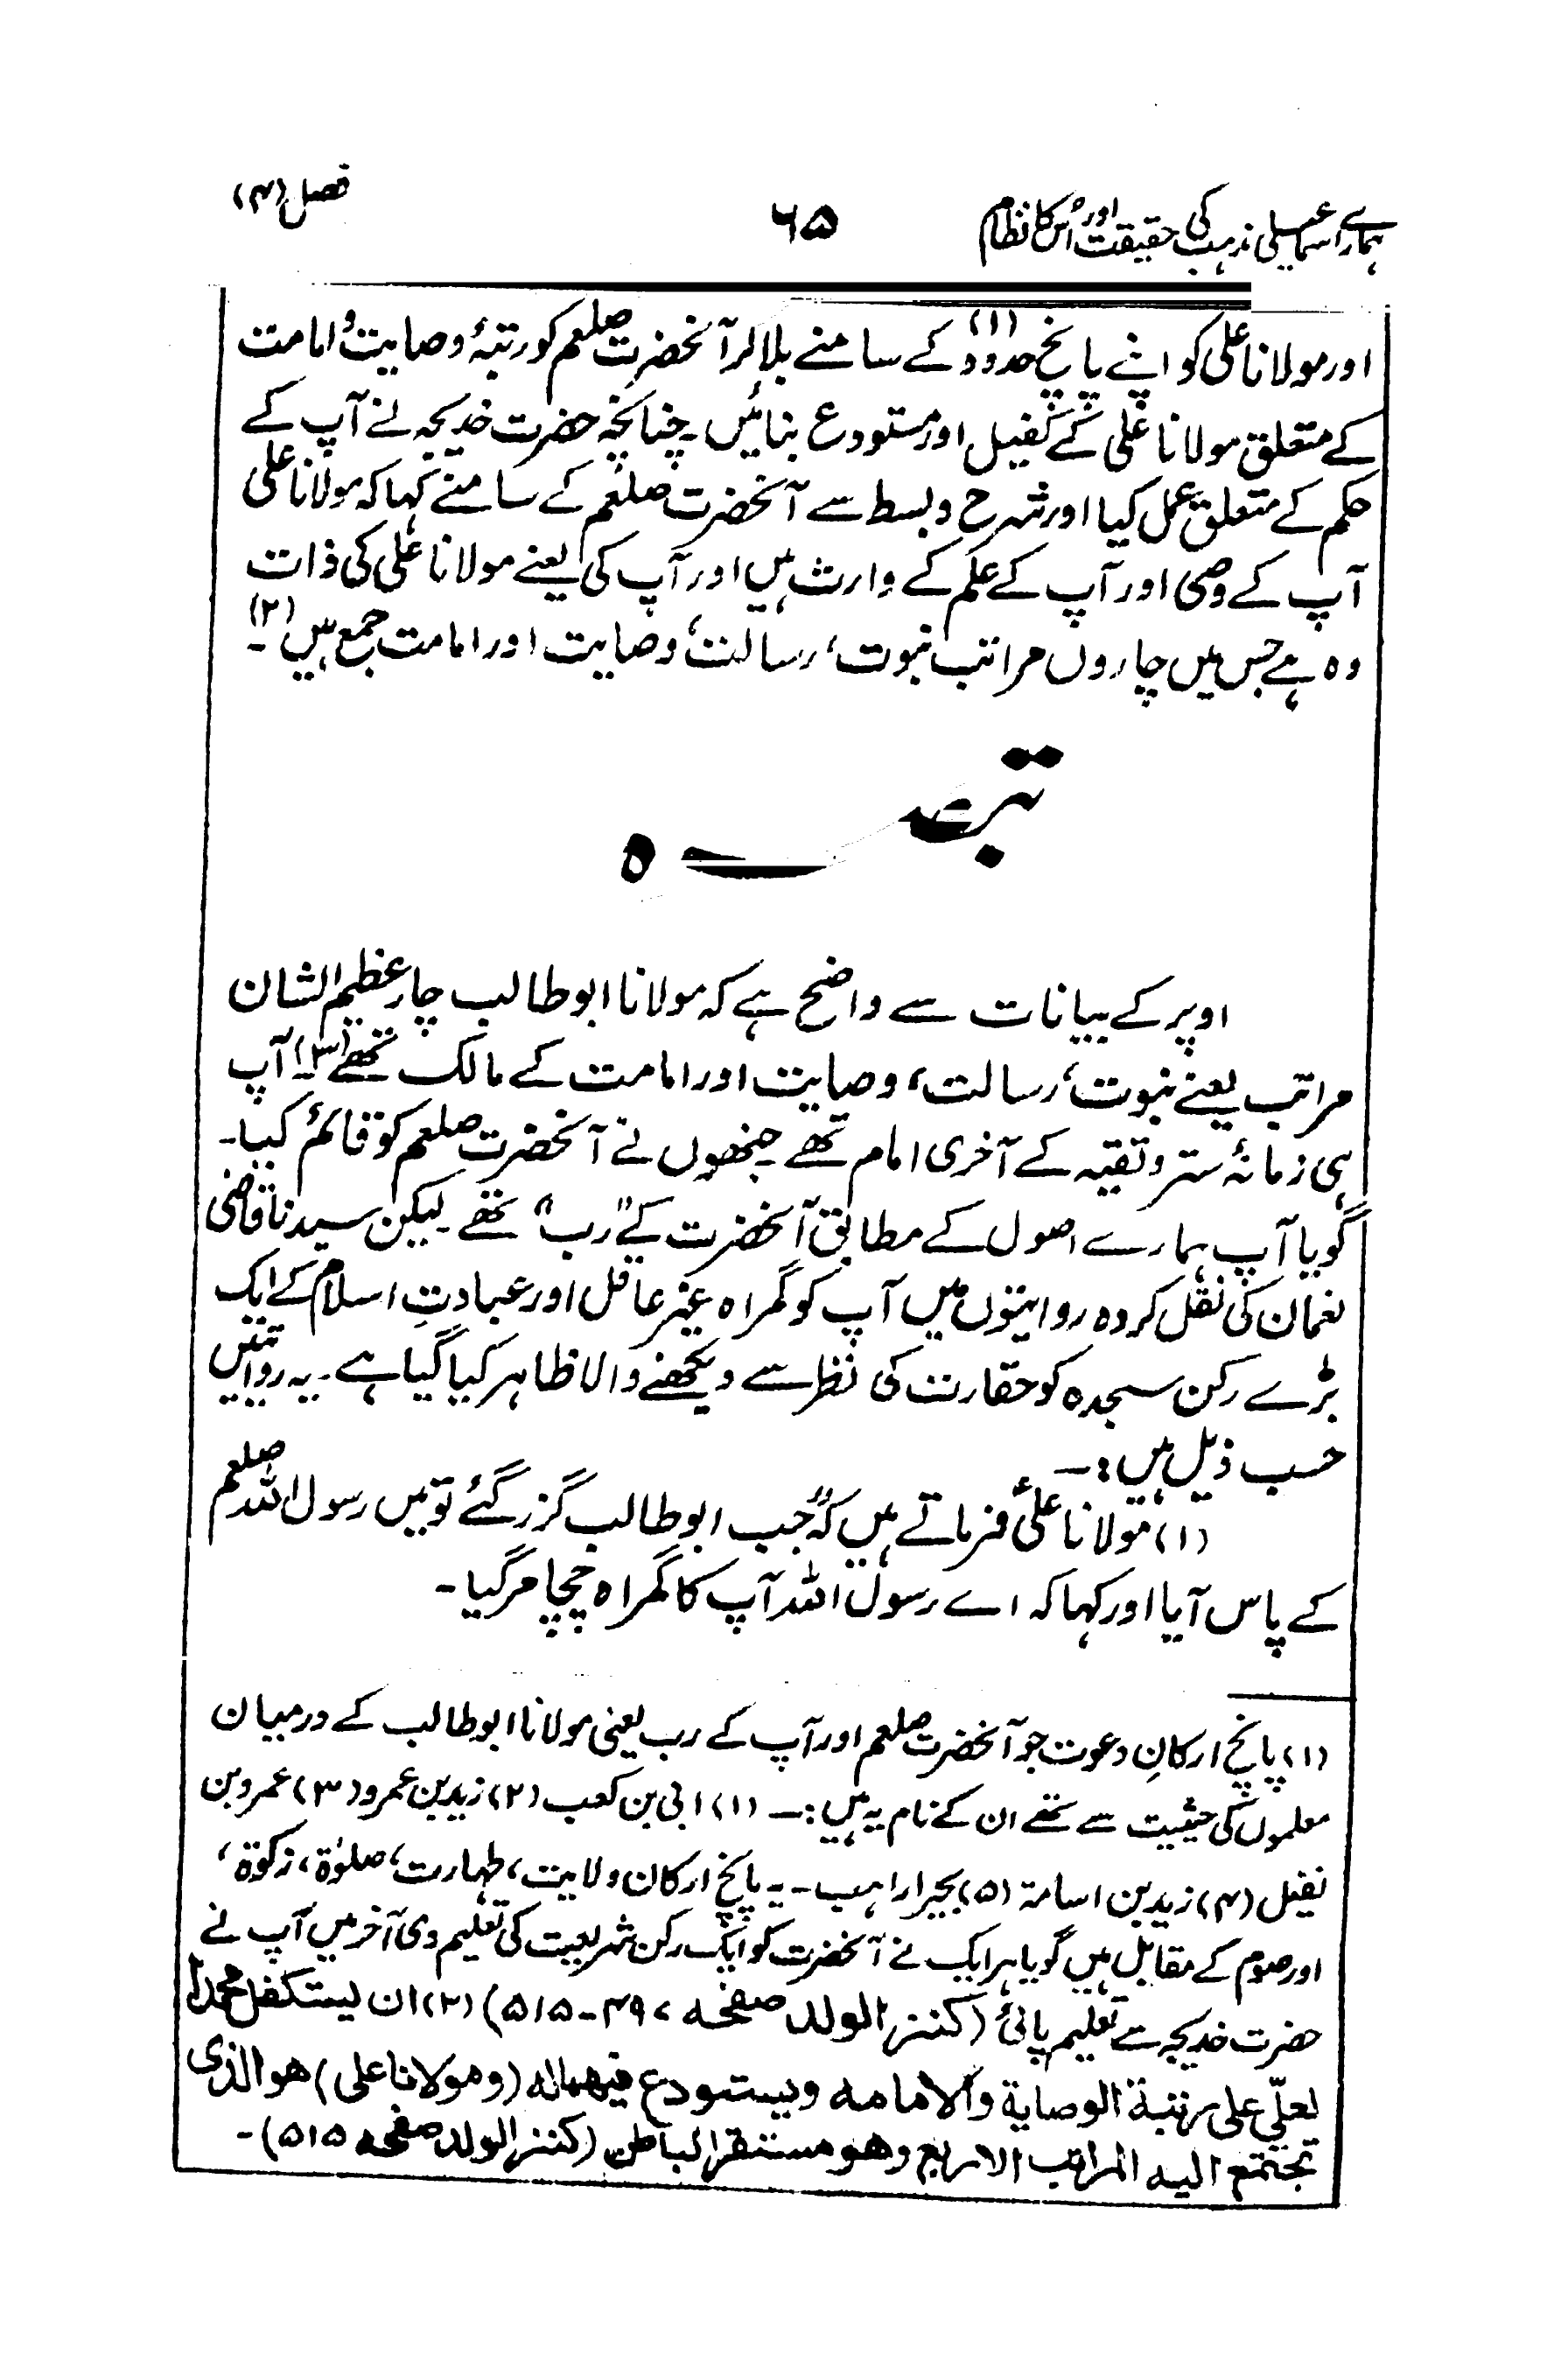 ہمارے اسماعیلی مذہب کی حقیقت اور اُس کا نظام
۶۵
فصل (۴)
اور مولانا علی کو اپنے پانچ حدود (۱) کے سامنے بلا کر آنحضرت صلعم کو رتبۂ وصایت و امامت
کے متعلق مولانا علی کے کفیل اور مستودع بنائیں۔ چنانچہ حضرت خدیجہ نے آپ کے
حکم کے متعلق عمل کیا اور شرح و بسط سے آنحضرت صلعم کے سامنے کہا کہ مولانا علی
آپ کے وصی اور آپ کے علم کے وارث ہیں اور آپ کی یعنے مولانا علی کی ذات
وہ ہے جس میں چاروں مراتب نبوت، رسالت، وصایت اور امامت جمع ہیں (۲)۔
تبصرہ
اوپر کے بیانات سے واضح ہے کہ مولانا ابو طالب چار عظیم الشان
مراتب یعنے نبوت، رسالت، وصایت اور امامت کے مالک تھے (۳)۔ آپ
ہی زمانۂ ستر و تقیہ کے آخری امام تھے جنھوں نے آنحضرت صلعم کو قائم کیا۔
گویا آپ ہمارے اصول کے مطابق آنحضرت کے "رب" تھے۔ لیکن سیدنا قاضی
نعمان کی نقل کردہ روایتوں میں آپ کو گمراہ غیر عاقل اور عبادتِ اسلام کے ایک
بڑے رکن سجدہ کو حقارت کی نظر سے دیکھنے والا ظاہر کیا گیا ہے۔ یہ روایتیں
حسب ذیل ہیں:۔
(۱) مولانا علیؑ فرماتے ہیں کہ "جب ابو طالب گزر گئے تو میں رسول اللہ صلعم
کے پاس آیا اور کہا کہ اے رسول اللہ آپ کا گمراہ چچا مر گیا۔
(۱) پانچ ارکانِ دعوت جو آنحضرت صلعم اور آپ کے رب یعنی مولانا ابو طالب کے درمیان
معلموں کی حیثیت سے تھے ان کے نام یہ ہیں:۔ (۱) ابی بن کعب (۲) زید بن عمرو (۳) عمرو بن
نفیل (۴) زید بن اسامۃ (۵) بحیرا راہب۔ یہ پانچ ارکان ولایت، طہارت، صلوٰۃ، زکوٰۃ،
اور صوم کے مقابل ہیں گویا ہر ایک نے آنحضرت کو ایک رکن شریعت کی تعلیم دی آخر میں آپ نے
حضرت خدیجہ سے تعلیم پائی (کنز الولد صفحہ ۴۹۷-۵۱۵) (۲) ان یستکفل محمداً
لعلیّ علی مرتبة الوصایة والامامه ویستودع فیهما له (و مولانا علی) هو الذی
تجتمع الیه المراتب الاربع وهو مستقر الباطن (کنز الولد صفحه ۵۱۵)۔